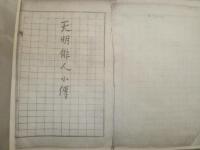 天明俳人小傳